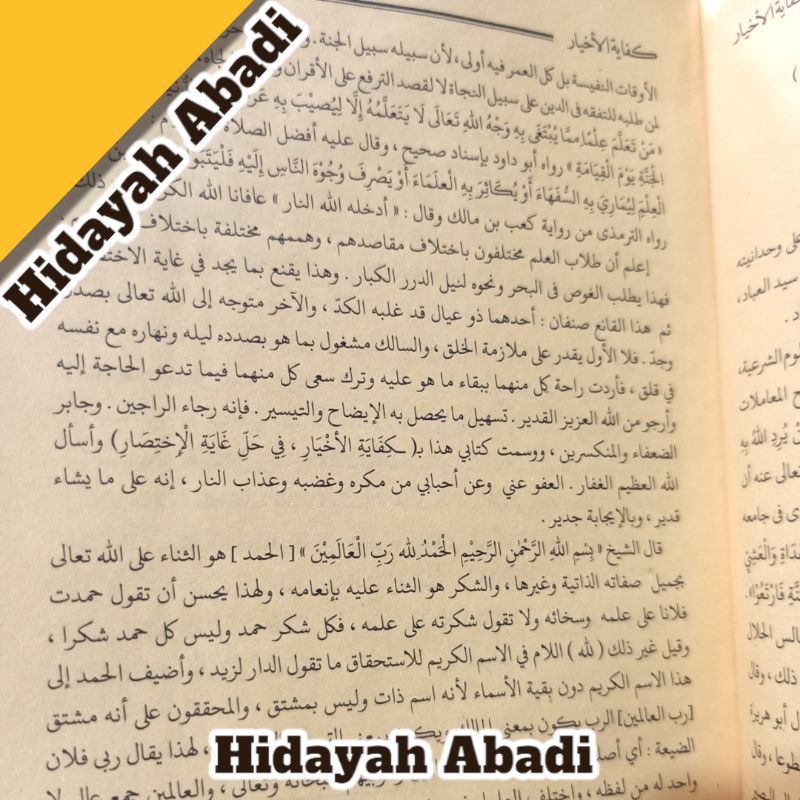 Hidayah Abadi
كفاية الأخيار
كفاية الأخيار
الأوقات النفيسة بل كل العمر فيه أولى، لأن سبيله سبيل الجنة.
لمن طلبه للتفقه في الدين على سبيل النجاة لا لقصد الترفع على الأقران
« مَنْ تَعَلَّمَ عِلْمًا مِمَّا يُبْتَغَى بِهِ وَجْهُ اللهِ تَعَالَى لَا يَتَعَلَّمُهُ إِلَّا لِيُصِيْبَ بِهِ
الْجَنَّةِ يَوْمَ الْقِيَامَةِ » رواه أبو داود بإسناد صحيح ، وقال عليه أفضل الصلاة
الْعِلْمَ لِيُمَارِيَ بِهِ السُّفَهَاءَ أَوْ يُكَاثِرَ بِهِ الْعُلَمَاءَ أَوْ يَصْرِفَ وُجُوْهَ النَّاسِ إِلَيْهِ
رواه الترمذى من رواية كعب بن مالك وقال : « أدخله الله النار » عافانا الله ذلك
إعلم أن طلاب العلم مختلفون باختلاف مقاصدهم ، وهممهم مختلفة باختلاف
فهذا يطلب الغوص فى البحر ونحوه لنيل الدرر الكبار . وهذا يقنع بما يجد في غاية
ثم هذا القانع صنفان : أحدهما ذو عيال قد غلبه الكدّ ، والآخر متوجه إلى الله تعالى بصدق
وجدّ . فلا الأول يقدر على ملازمة الخلق ، والسالك مشغول بما هو بصدده ليله ونهاره مع نفسه
في قلق ، فأردت راحة كل منهما ببقاء ما هو عليه وترك سعى كل منهما فيما تدعو الحاجة إليه
وأرجو من الله العزيز القدير . تسهيل ما يحصل به الإيضاح والتيسير . فإنه رجاء الراجين . وجابر
الضعفاء والمنكسرين ، ووسمت كتابي هذا بـ( ـكِفَايَةِ الأَخْيَارِ ، فِي حَلِّ غَايَةِ الْإِخْتِصَارِ) وأسأل
الله العظيم الغفار . العفو عني وعن أحبابي من مكره وغضبه وعذاب النار ، إنه على ما يشاء
قدير ، وبالإيجابة جدير .
قال الشيخ « بِسْمِ اللهِ الرَّحْمٰنِ الرَّحِيْمِ الْحَمْدُ لِلّٰهِ رَبِّ الْعَالَمِيْنَ » [ الحمد ] هو الثناء على الله تعالى
بجميل صفاته الذاتية وغيرها ، والشكر هو الثناء عليه بإنعامه ، ولهذا يحسن أن تقول حمدت
فلانا على علمه وسخائه ولا تقول شكرته على علمه ، فكل شكر حمد وليس كل حمد شكرا ،
وقيل غير ذلك ( لله ) اللام في الاسم الكريم للاستحقاق ما تقول الدار لزيد ، وأضيف الحمد إلى
هذا الاسم الكريم دون بقية الأسماء لأنه اسم ذات وليس بمشتق ، والمحققون على أنه مشتق
[رب العالمين] الرب يكون بمعنى المالك ويكون بمعنى
الضيعة : أي لهذا يقال ربى فلان
وتعالى ، والعالمين جمع عالم لا
واحد له من لفظه ، واختلف
على وحدانيته
سيد العباد،
الشرعية،
المعاملات
يُرِدِ اللهُ بِهِ
تعالى عنه أن
فى جامعه
وَالْعَشِيِّ
فَارْتَعُوْا».
الحلال
ذلك ، وقال
أبو هريرة
وقال
Hidayah Abadi